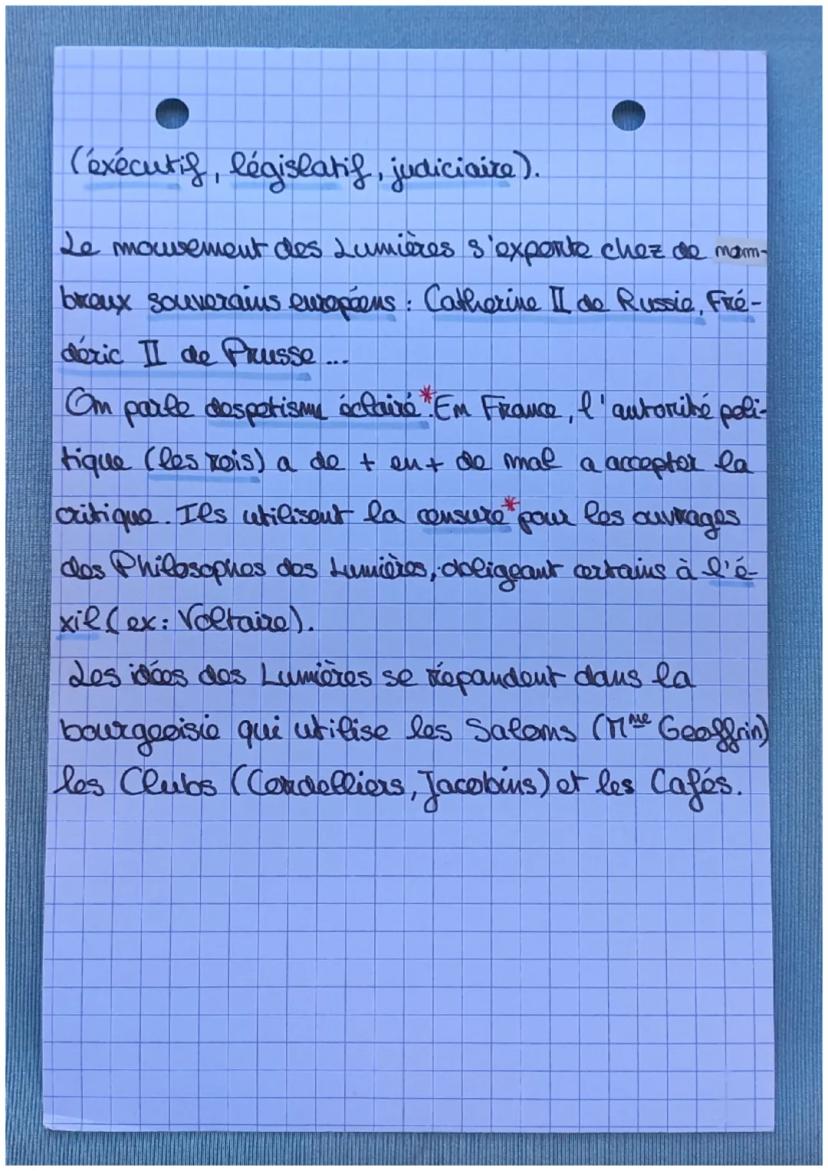 (éxécutif, législatif, judiciaire).
Le mouvement des Lumières s'exporte chez de nom-
breux souverains européens : Catherine II de Russie, Fré-
déric II de Prusse ...
On parle despotisme éclairé*. En France, l'autorité poli-
tique (les rois) a de + en + de mal a accepter la
critique. Ils utilisent la censure* pour les ouvrages
des Philosophes des Lumières, obligeant certains à l'é-
xil (ex : Voltaire).
Les idées des Lumières se répandent dans la
bourgeoisie qui utilise les Salons (Mme Geoffrin)
les Clubs (Cordelliers, Jacobins) et les Cafés.